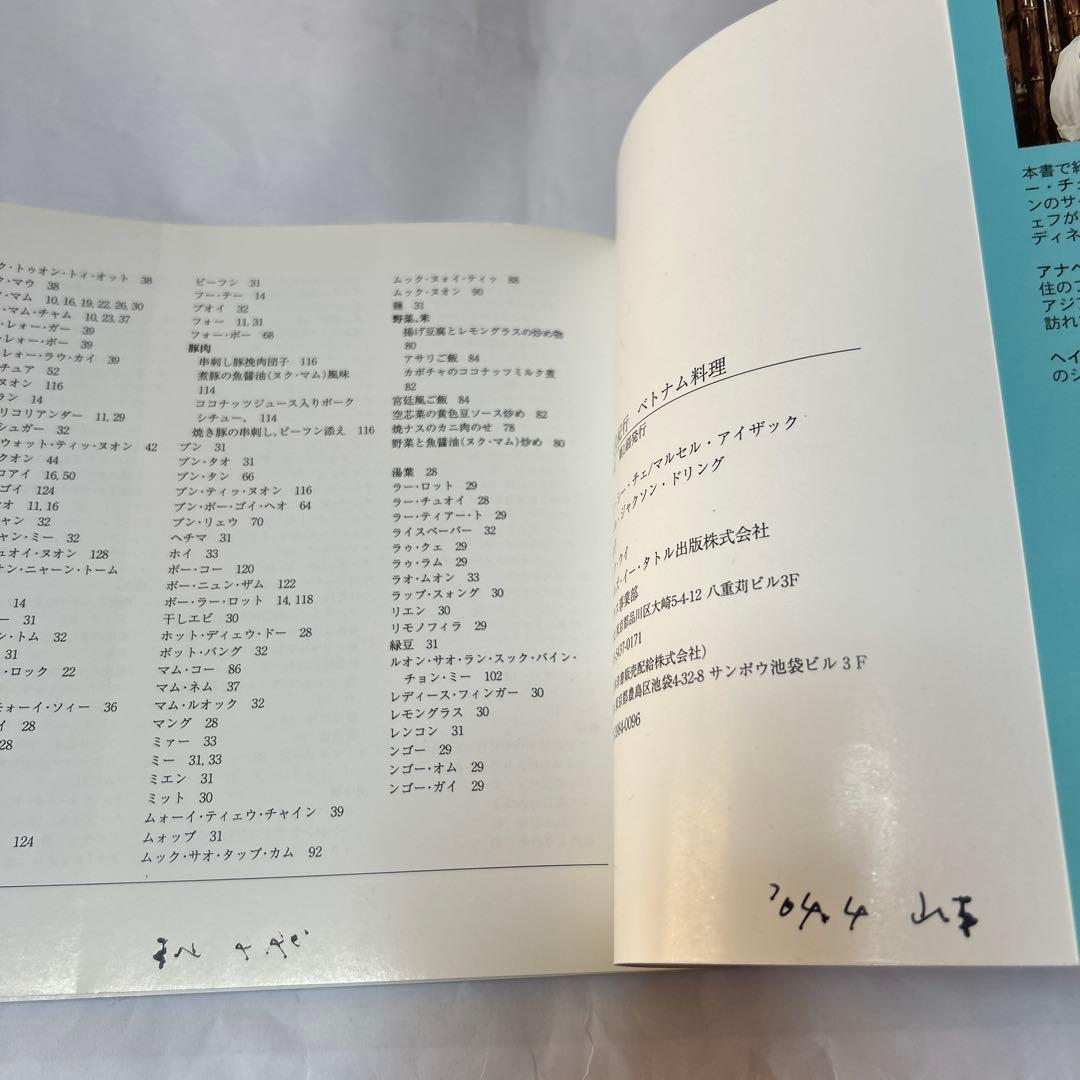 ク・トゥオン・トィ・オット 38
ク・マウ 38
ク・マム 10, 16, 19, 22, 26, 30
・マム・チャム 10, 23, 37
・レォー・ガー 39
・レォー・ボー 39
レォー・ラウ・カイ 39
チュア 52
ヌオン 116
ラン 14
リコリアンダー 11, 29
シュガー 32
ウォット・ティッ・ヌオン 42
クオン 44
コアイ 16, 50
ゴイ 124
オ 11, 16
ャン 32
ャン・ミー 32
ュオイ・ヌオン 128
ナン・ニャーン・トーム
14
ー 31
ン・トム 32
31
・ロック 22
モォーイ・ソィー 36
イ 28
28
124
ビーフン 31
フー・テー 14
ブオイ 32
フォー 11, 31
フォー・ボー 68
豚肉
串刺し豚挽肉団子 116
煮豚の魚醤油(ヌク・マム)風味
114
ココナッツジュース入りポーク
シチュー、 114
焼き豚の串刺し、ビーフン添え 116
ブン 31
ブン・タオ 31
ブン・タン 66
ブン・ティッ・ヌオン 116
ブン・ボー・ゴイ・ヘオ 64
ブン・リェウ 70
ヘチマ 31
ホイ 33
ボー・コー 120
ボー・ニュン・ザム 122
ボー・ラー・ロット 14, 118
干しエビ 30
ホット・ディェウ・ドー 28
ボット・バング 32
マム・コー 86
マム・ネム 37
マム・ルオック 32
マング 28
ミァー 33
ミー 31, 33
ミエン 31
ミット 30
ムォーイ・ティェウ・チャイン 39
ムォップ 31
ムック・サオ・タップ・カム 92
ムック・ヌォイ・ティッ 88
ムック・ヌオン 90
麺 31
野菜、米
揚げ豆腐とレモングラスの炒め物
80
アサリご飯 84
カボチャのココナッツミルク煮
82
宮廷風ご飯 84
空芯菜の黄色豆ソース炒め 82
焼ナスのカニ肉のせ 78
野菜と魚醤油(ヌク・マム)炒め 80
湯葉 28
ラー・ロット 29
ラー・チュオイ 28
ラー・ティアー・ト 29
ライスペーパー 32
ラゥ・クェ 29
ラゥ・ラム 29
ラオ・ムオン 33
ラップ・スォング 30
リエン 30
リモノフィラ 29
緑豆 31
ルオン・サオ・ラン・スック・バイン・
チョン・ミー 102
レディース・フィンガー 30
レモングラス 30
レンコン 31
ンゴー 29
ンゴー・オム 29
ンゴー・ガイ 29
紀行 ベトナム料理
第1刷発行
ジー・チェ/マルセル・アイザック
ジャクソン・ドリング
ケイ
ズ・イー・タトル出版株式会社
事業部
東京都品川区大崎5-4-12 八重苅ビル3F
5437-0171
出版販売配給株式会社)
東京都豊島区池袋4-32-8 サンボウ池袋ビル3F
3984-0096
'04.4
本書で紹
ー・チェ
ンのサイ
ェフが
ディネ
アナベ
住のフ
アジア
訪れ
ヘイ
のシ